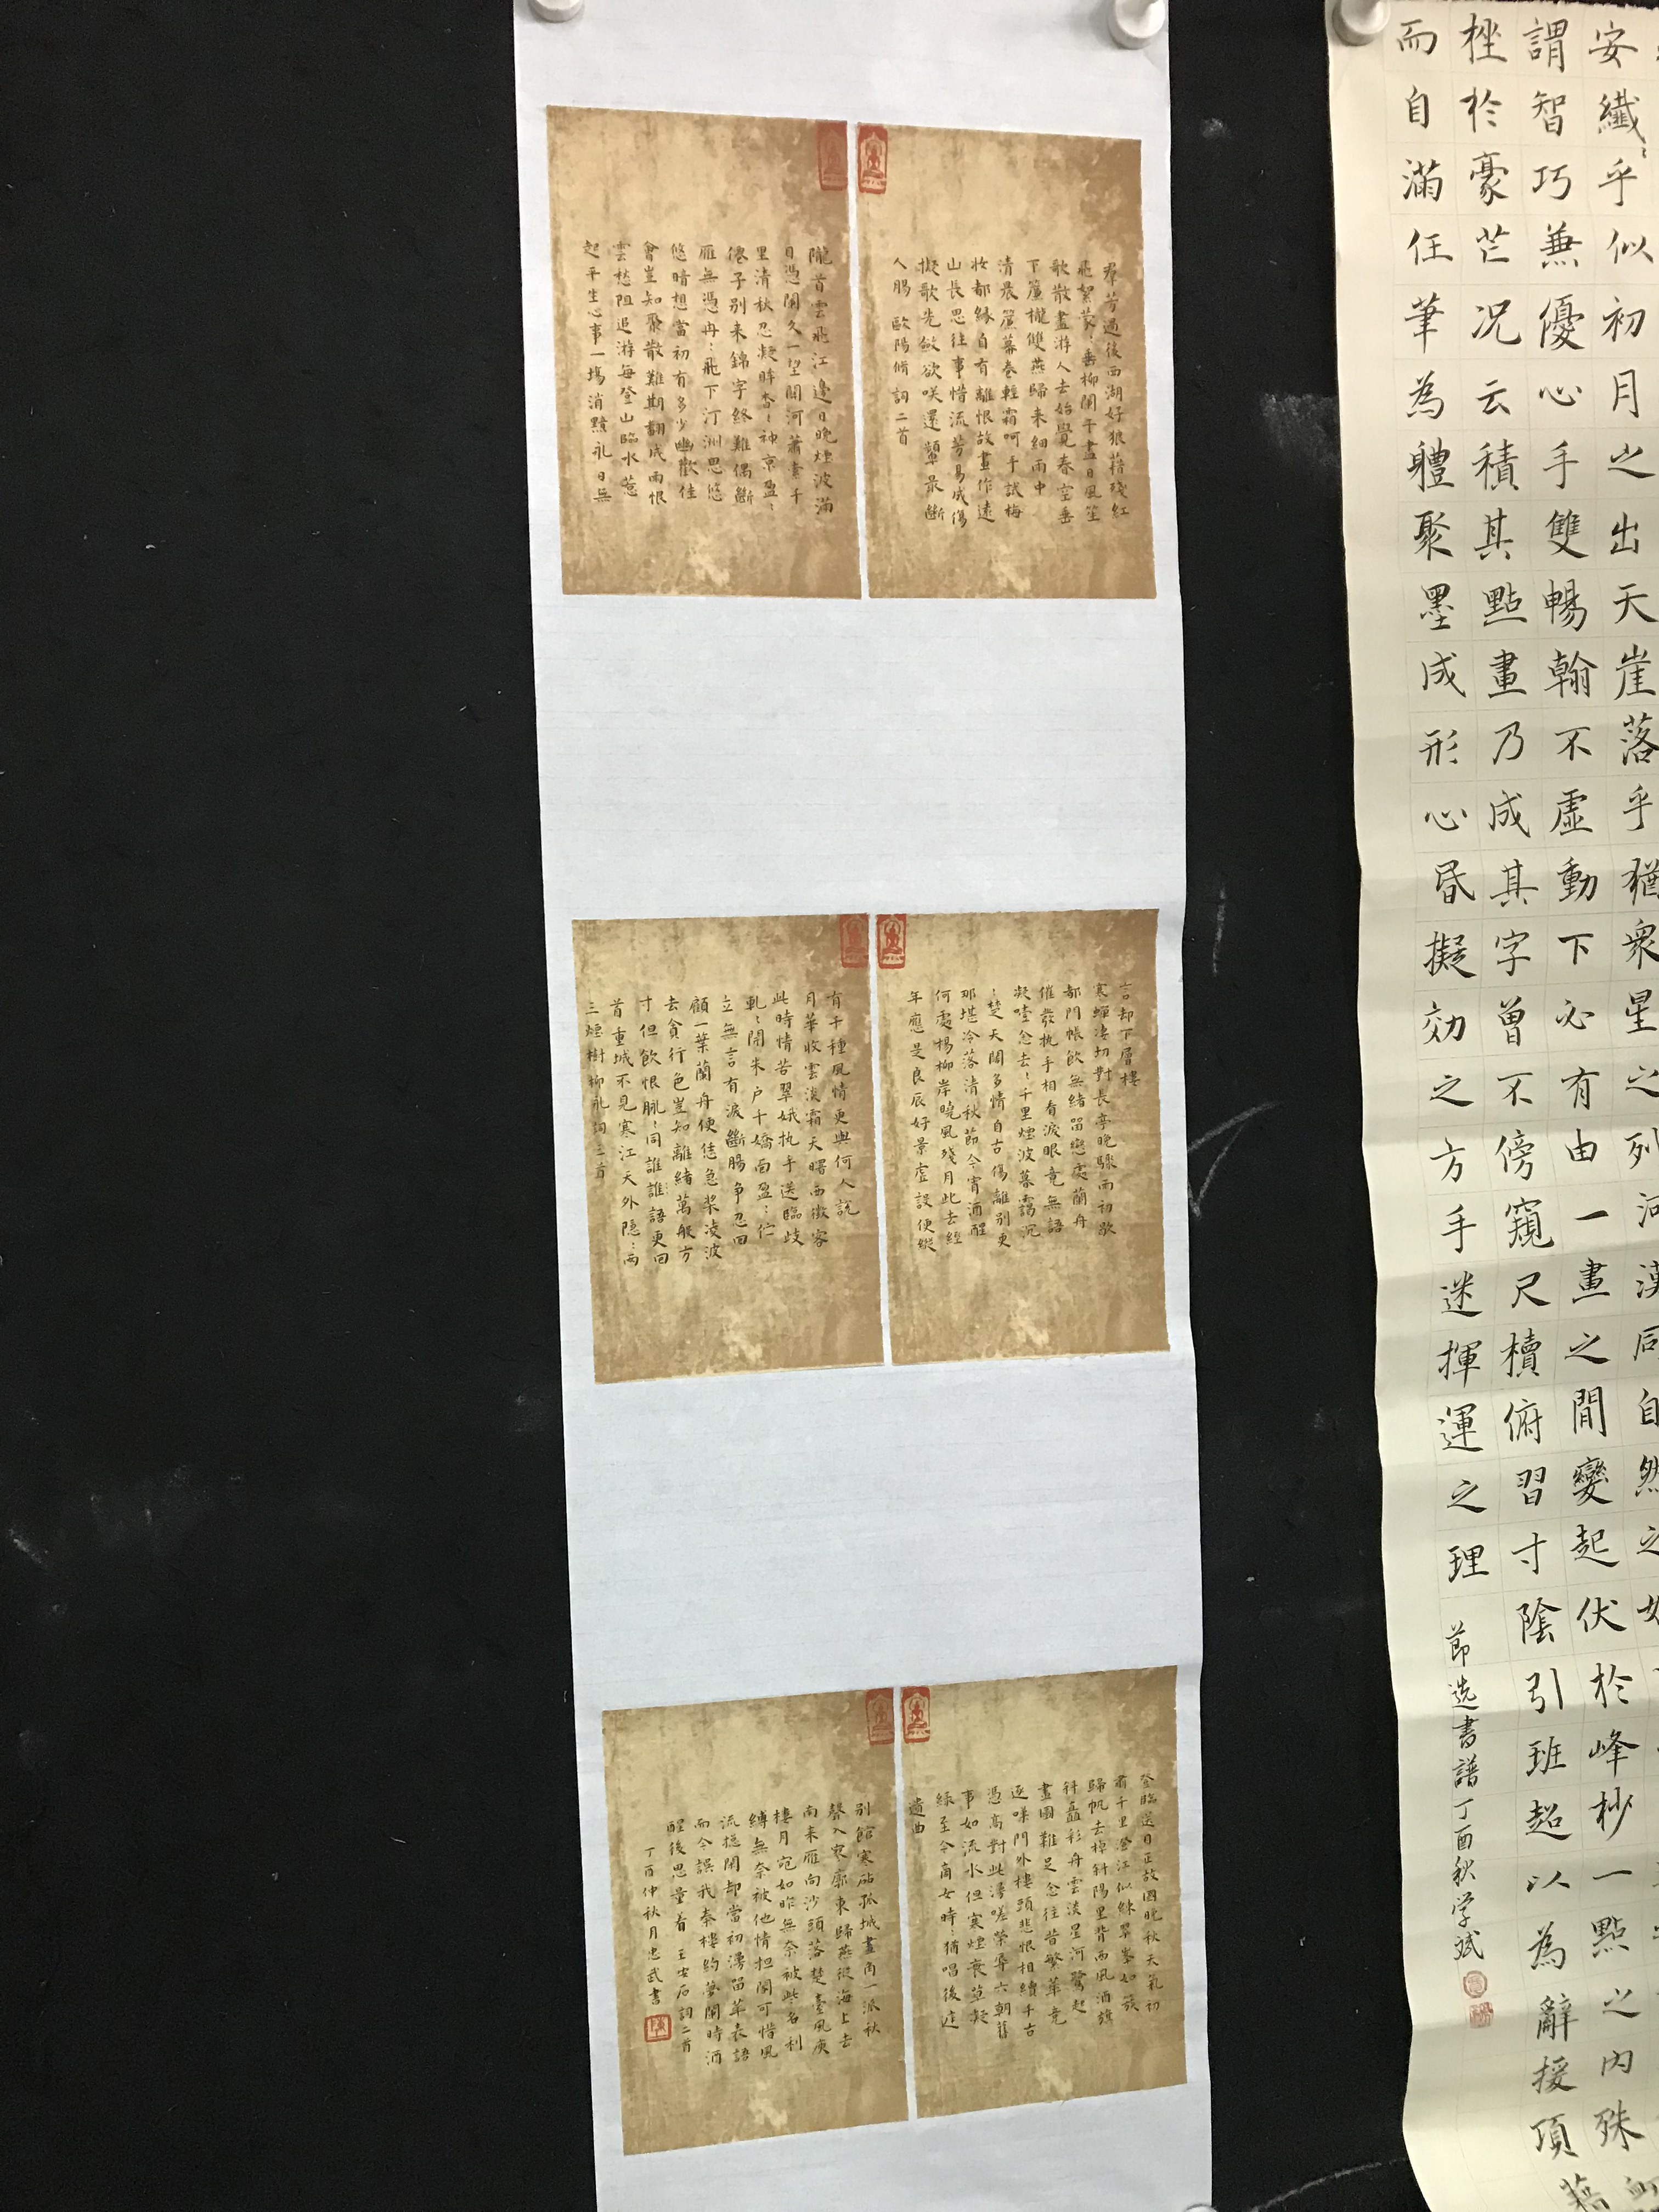 安纖〻乎似初月之出天崖落乎猶衆星之列河漢同自然之
謂智巧兼優心手雙暢翰不虛動下必有由一畫之間變起伏於峰杪一點之內殊衂
挫於豪芒况云積其點畫乃成其字曾不傍窺尺櫝俯習寸陰引班超以為辭援項藉
而自滿任筆為軆聚墨成形心昏擬効之方手迷揮運之理 節选書譜丁酉秋学斌
羣芳過後西湖好狼藉殘紅
飛絮蒙〻垂柳闌干盡日風笙
歌散盡游人去始覺春空垂
下簾櫳雙燕歸來細雨中
清晨簾幕卷輕霜呵手試梅
妝都緣自有離恨故畫作遠
山長思往事惜流芳易成傷
擬歌先斂欲咲還顰最斷
人腸 歐陽脩詞二首
隴首雲飛江邊日晚煙波滿
目憑闌久一望關河蕭索千
里清秋忍凝眸杳〻神京盈〻
僊子別來錦字終難偶斷
雁無憑冉〻飛下汀洲思悠
悠暗想當初有多少幽歡佳
會豈知聚散難期翻成雨恨
雲愁阻追游每登山臨水惹
起平生心事一場消黯永日無
言却下層樓
寒蟬淒切對長亭晚驟雨初歇
都門帳飲無緒留戀處蘭舟
催發執手相看淚眼竟無語
凝噎念去〻千里煙波暮靄沉
〻楚天闊多情自古傷離別更
那堪冷落清秋節今宵酒醒
何處楊柳岸曉風殘月此去經
年應是良辰好景虛設便縱
有千種風情更與何人說
月華收雲淡霜天曙西徵客
此時情苦翠娥執手送臨歧
軋〻開朱户千嬌面盈〻佇
立無言有淚斷腸爭忍回
顧一葉蘭舟便恁急槳凌波
去貪行色豈知離緒萬般方
寸但飲恨脈〻同誰語更回
首重城不見寒江天外隱〻兩
三煙樹 柳永詞三首
登臨送目正故國晚秋天氣初
肅千里澄江似練翠峯如簇
歸帆去棹斜陽里背西風酒旗
斜矗彩舟雲淡星河鷺起
畫圖難足念往昔繁華竞
逐嘆門外樓頭悲恨相續千古
憑高對此漫嗟榮辱六朝舊
事如流水但寒煙衰草凝
綠至今商女時〻猶唱後庭
遺曲
別館寒砧孤城畫角一派秋
聲入寥廓東歸燕從海上去
南來雁向沙頭落楚臺風庾
樓月宛如昨無奈被此名利
縛無奈被他情担閣可惜風
流揔閑却當初漫留華表語
而今誤我秦樓約夢闌時酒
醒後思量着 王安石詞二首
丁酉仲秋月忠武書